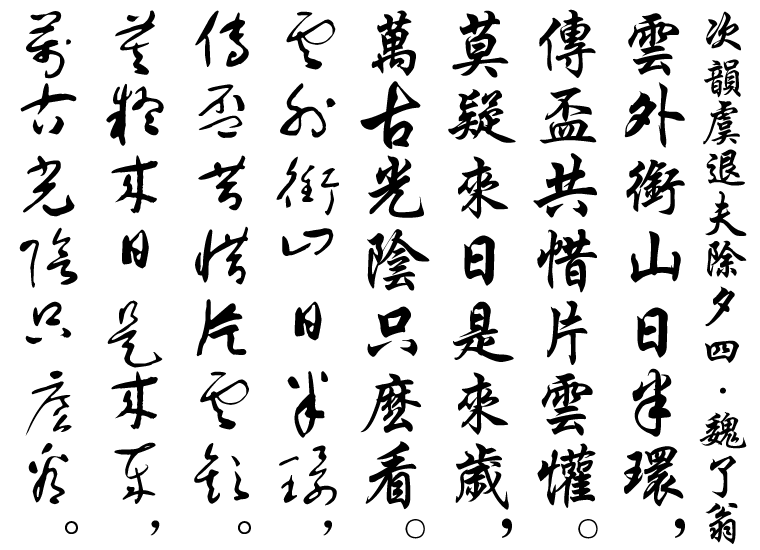 次韻虞退夫除夕四．魏了翁
雲外銜山日半環，
傳盃共惜片雲懽。
莫疑來日是來歲，
萬古光陰只麼看。
雲外銜山日半環，
傳盃共惜片雲歡。
莫疑來日是來歲，
萬古光陰只麼看。